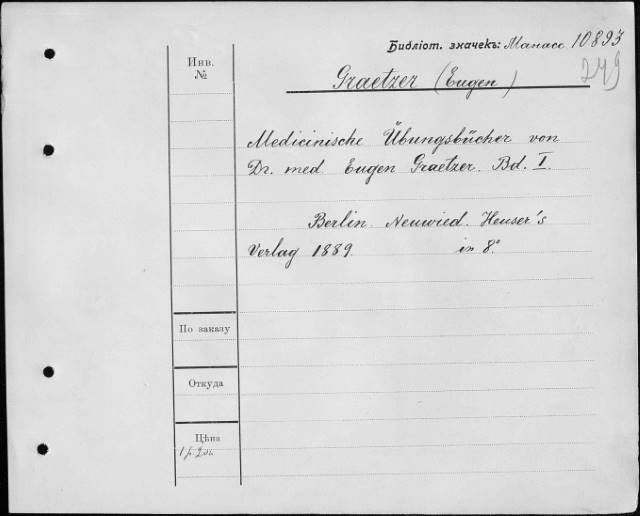 Библіот. значекъ: Манасс. 10893
249
Инв.
№
Graetzer (Eugen)
Medicinische Übungsbücher von
Dr. med. Eugen Graetzer. Bd. I.
Berlin. Neuwied. Heuser's
Verlag 1889. in 8°.
По заказу
Откуда
Цѣна